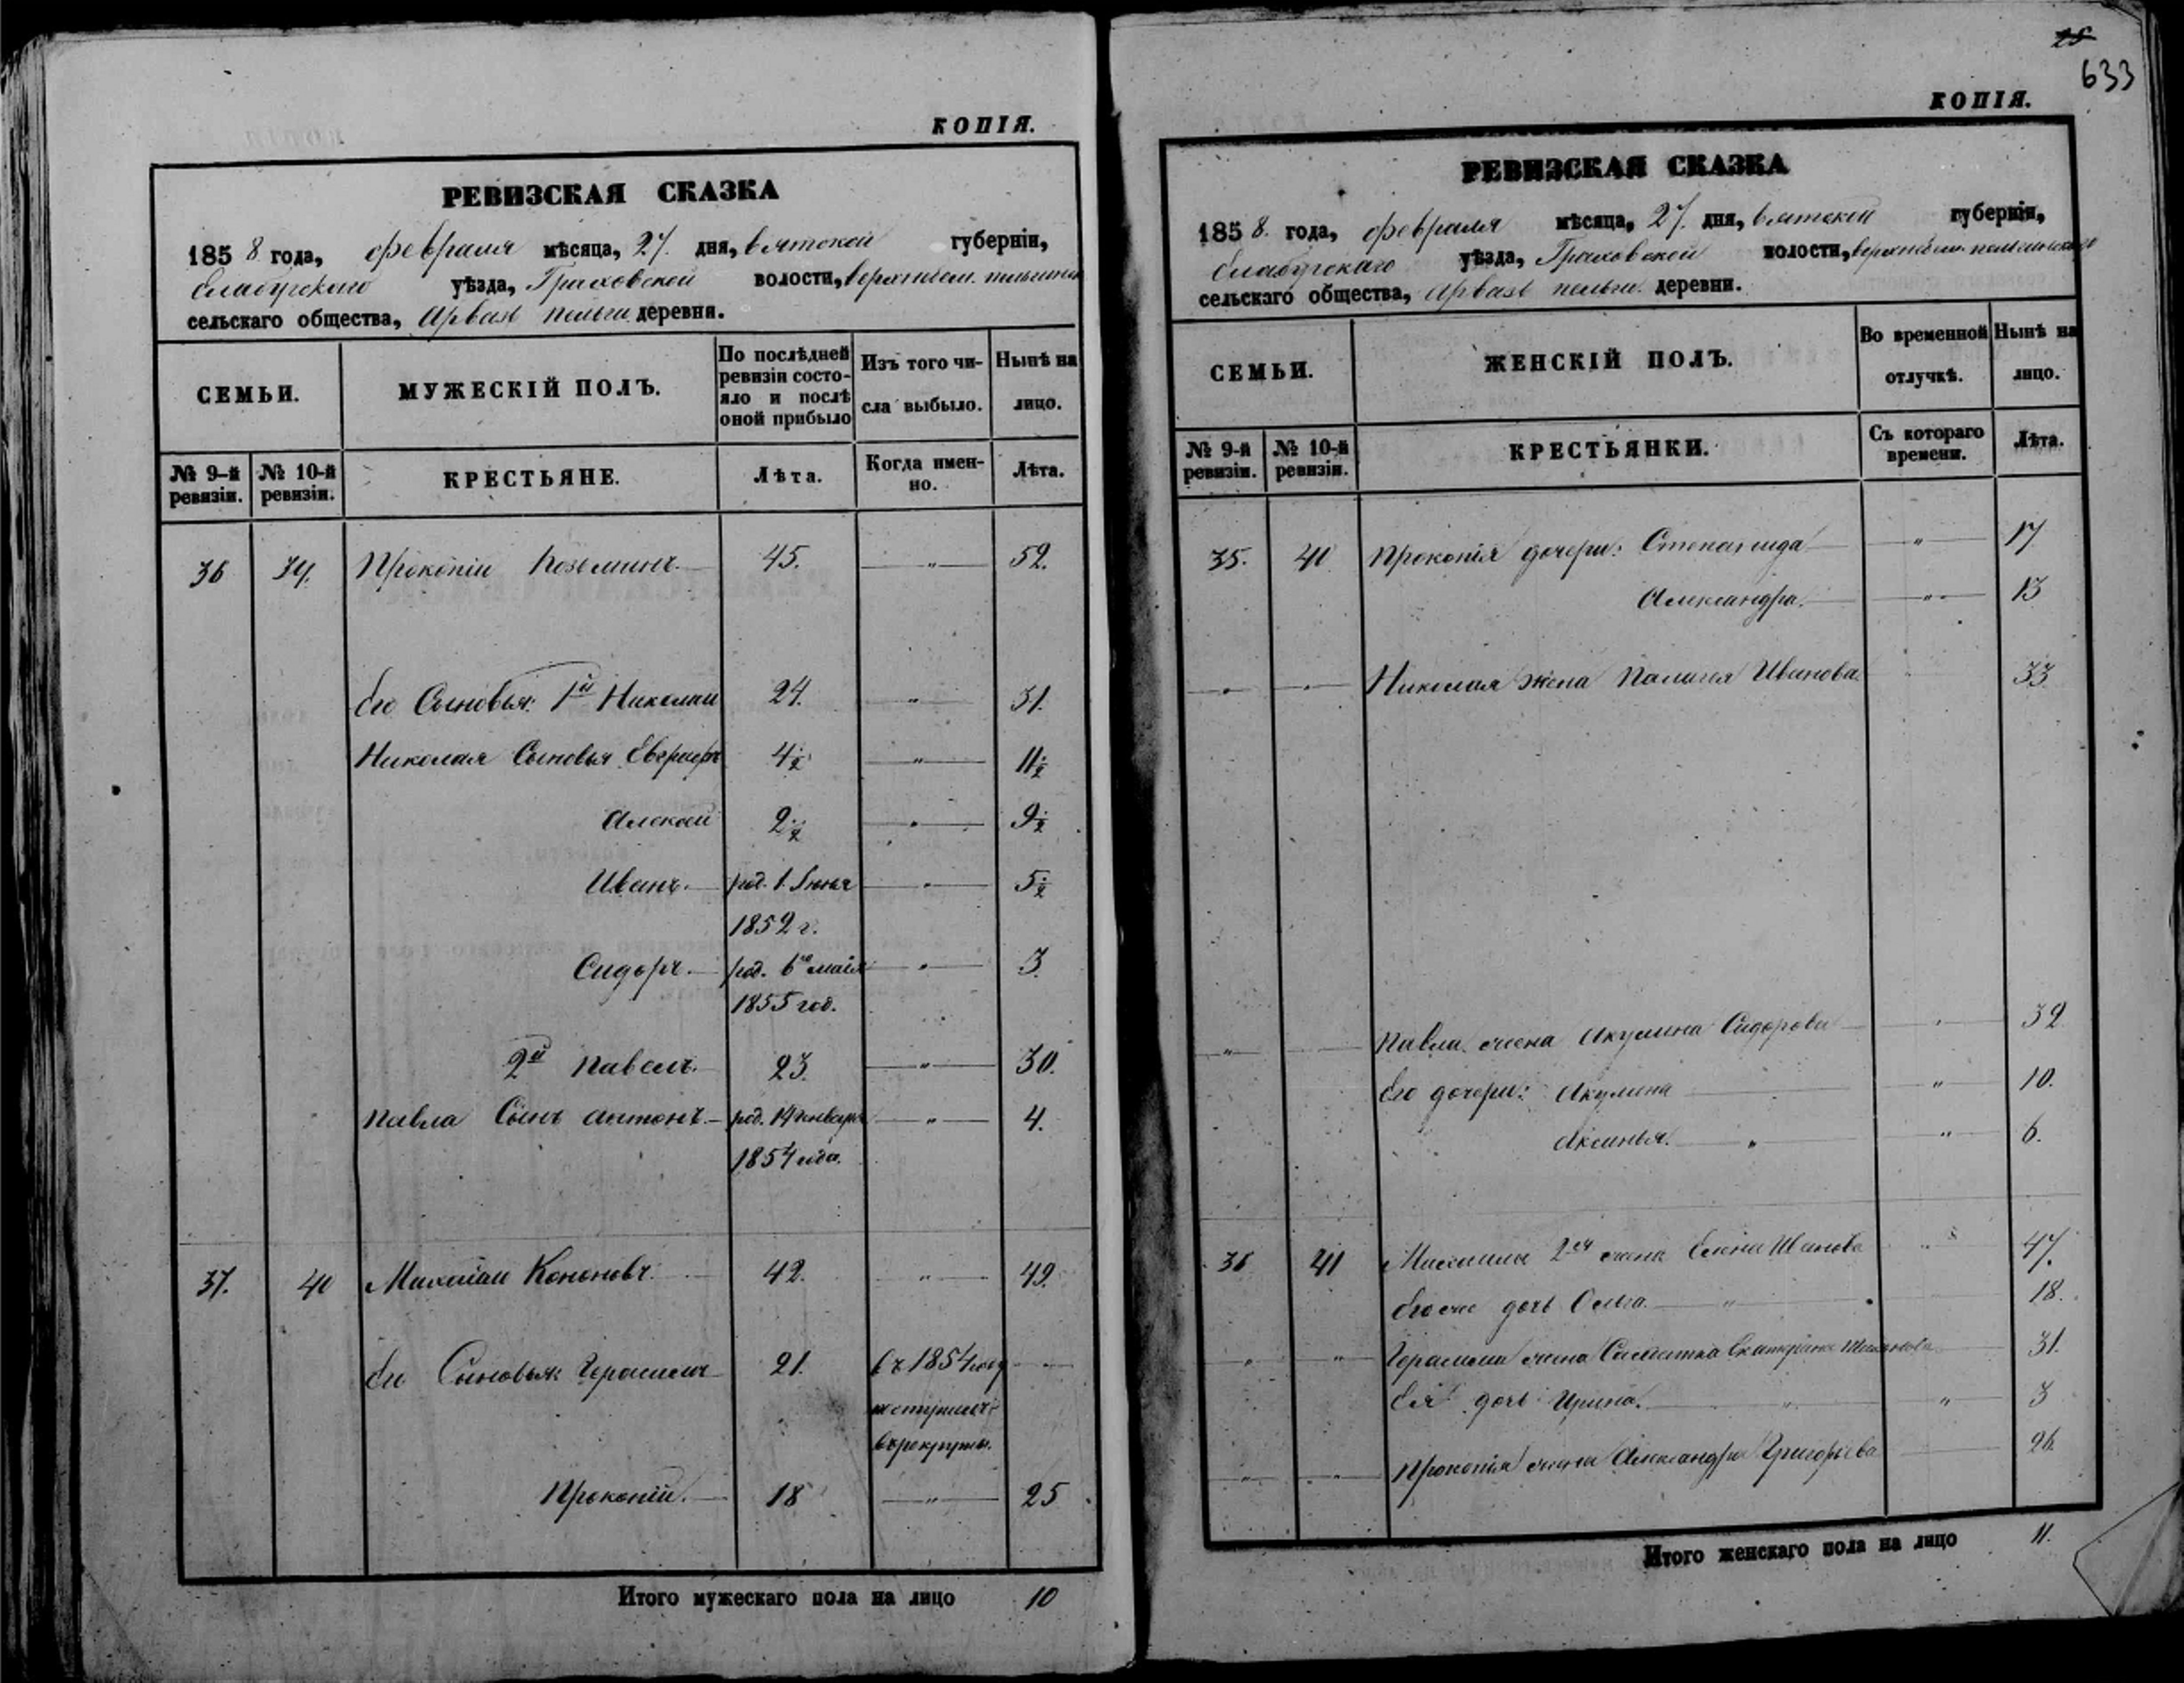 КОПІЯ.
РЕВИЗСКАЯ СКАЗКА
1858 года, февраля мѣсяца, 27. дня, вятской губерніи,
Елабужскаго уѣзда, Граховской волости,
сельскаго общества, Арвазь пельги деревни.
СЕМЬИ.
МУЖЕСКІЙ ПОЛЪ.
По послѣдней ревизіи состояло и послѣ оной прибыло
Изъ того числа выбыло.
Нынѣ на лицо.
№ 9-й ревизіи.
№ 10-й ревизіи.
КРЕСТЬЯНЕ.
Лѣта.
Когда именно.
Лѣта.
36 39. Прокопій Козьминъ. 45. " 52.
Его Сыновья: 1й Николай 24. " 31.
Николая Сыновья Евграфъ 4½ " 11½
Алексѣй 2½ " 9½
Иванъ. род. 1. Іюня " 5½
1852 г.
Сидоръ. род. 6го маія " 3.
1855 год.
2й Павелъ. 23. " 30.
Павла Сынъ Антонъ. род. 14 января " 4.
1854 года.
37. 40 Михаилъ Кононовъ. 42. " 49.
Его Сыновья: Герасимъ 21. Въ 1854 году
поступилъ
въ рекруты.
Прокопій. 18 " 25
Итого мужескаго пола на лицо 10
25
633
КОПІЯ.
РЕВИЗСКАЯ СКАЗКА
1858. года, февраля мѣсяца, 27. дня, вятской губерніи,
Елабужскаго уѣзда, Граховской волости,
сельскаго общества, Арвазь пельги. деревни.
СЕМЬИ.
ЖЕНСКІЙ ПОЛЪ.
Во временной отлучкѣ.
Нынѣ на лицо.
№ 9-й ревизіи.
№ 10-й ревизіи.
КРЕСТЬЯНКИ.
Съ котораго времени.
Лѣта.
35. 40 Прокопія дочери: Степанида " 17
Александра. " 13
" " Николая жена Палагея Иванова 33
" Павла жена Акулина Сидорова " 32
Его дочери: Акулина " 10.
Аксинья. " " 6.
36 41 Михаила 2ая жена Елена Иванова " 47.
Его же дочь Ольга. " 18.
" " Герасима жена Солдатка Екатерина 31.
Ея дочь Ирина. " " 3
" " Прокопія жена Александра Григорьева 26.
Итого женскаго пола на лицо 11.